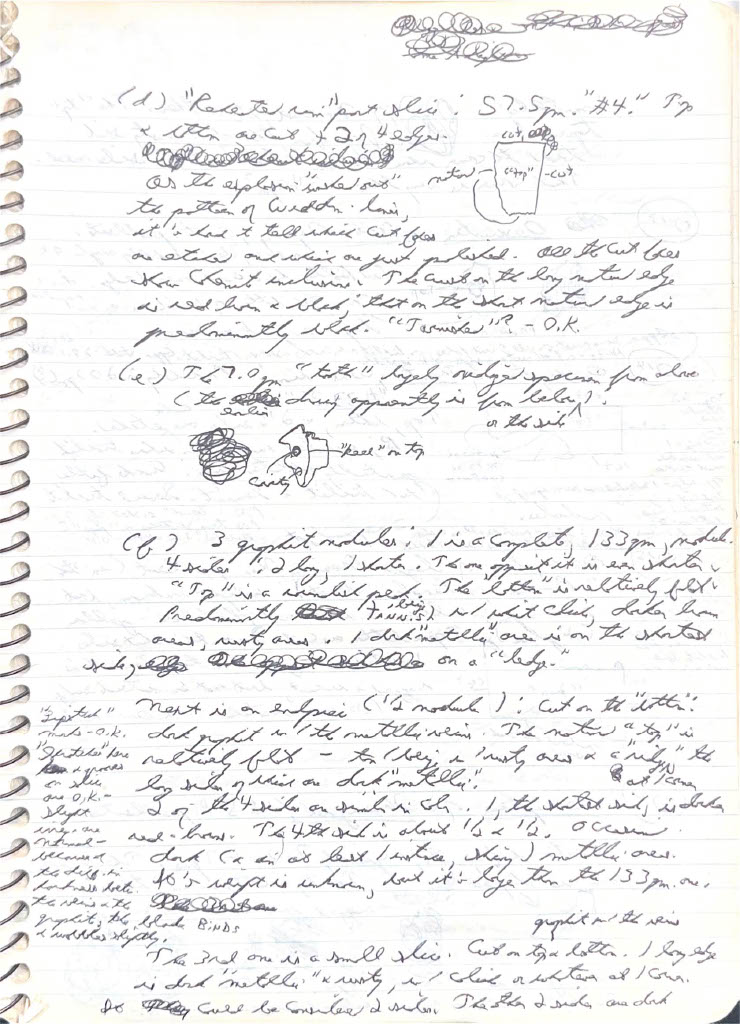 (d) "Remelted rim" part slice: 57.5gm. "#4." Top
& bottom are cut + 2 of 4 edges.
cut
As the explosion "washed out"
natural "top" -cut
the pattern of Widdm. lines,
it's hard to tell which cut faces
are etched and which are just polished. All the cut faces
show Cohenite inclusions. The crust on the long natural edge
is red brown & black; that on the short natural edge is
predominantly black. "Tarnished"? - O.K.
(e.) The 7.0gm "tooth" largely oxidized specimen from above
(the drawing apparently is from below).
earlier or the side
"keel" on top
cavity
(f) 3 graphite nodules: 1 is a complete, 133gm, nodule.
4 sides: 2 long, 1 shorter. The one opposite it is even shorter.
"Top" is a roundish peak. The "bottom" is relatively flat.
Predominantly TANNISH w/ white, darker brown
areas, rusty areas. 1 dark "metallic" area is on the shortest
side, on a "ledge."
Next is an endpiece (1/2 nodule): Cut on the "bottom":
dark graphite w/ the metallic veins. The natural "top" is
relatively flat - tan/beige w/ rusty areas & a "ridge" the
long sides of which are dark "metallic". at 1 corner
2 of the 4 sides are similar in color. 1, the shortest side, is darker
red-brown. The 4th side is about 1/2 & 1/2. Occasional
dark (& in at least 1 instance, shiny) metallic areas.
It's weight is unknown, but it's larger than the 133gm. one.
"Lipstick"
marks - O.K.
"Scratches" here
& grooves
on slice
are O.K. -
slight
irreg. are
natural -
because of
the diff. in
hardness betw.
the veins & the
graphite, the blade BINDS
& wobbles slightly.
graphite w/ the veins
The 3rd one is a small slice. Cut on top & bottom. 1 long edge
is dark "metallic" & rusty, w/ caliche or whatever at 1 corner.
It could be considered 2 sides. The other 2 sides are dark